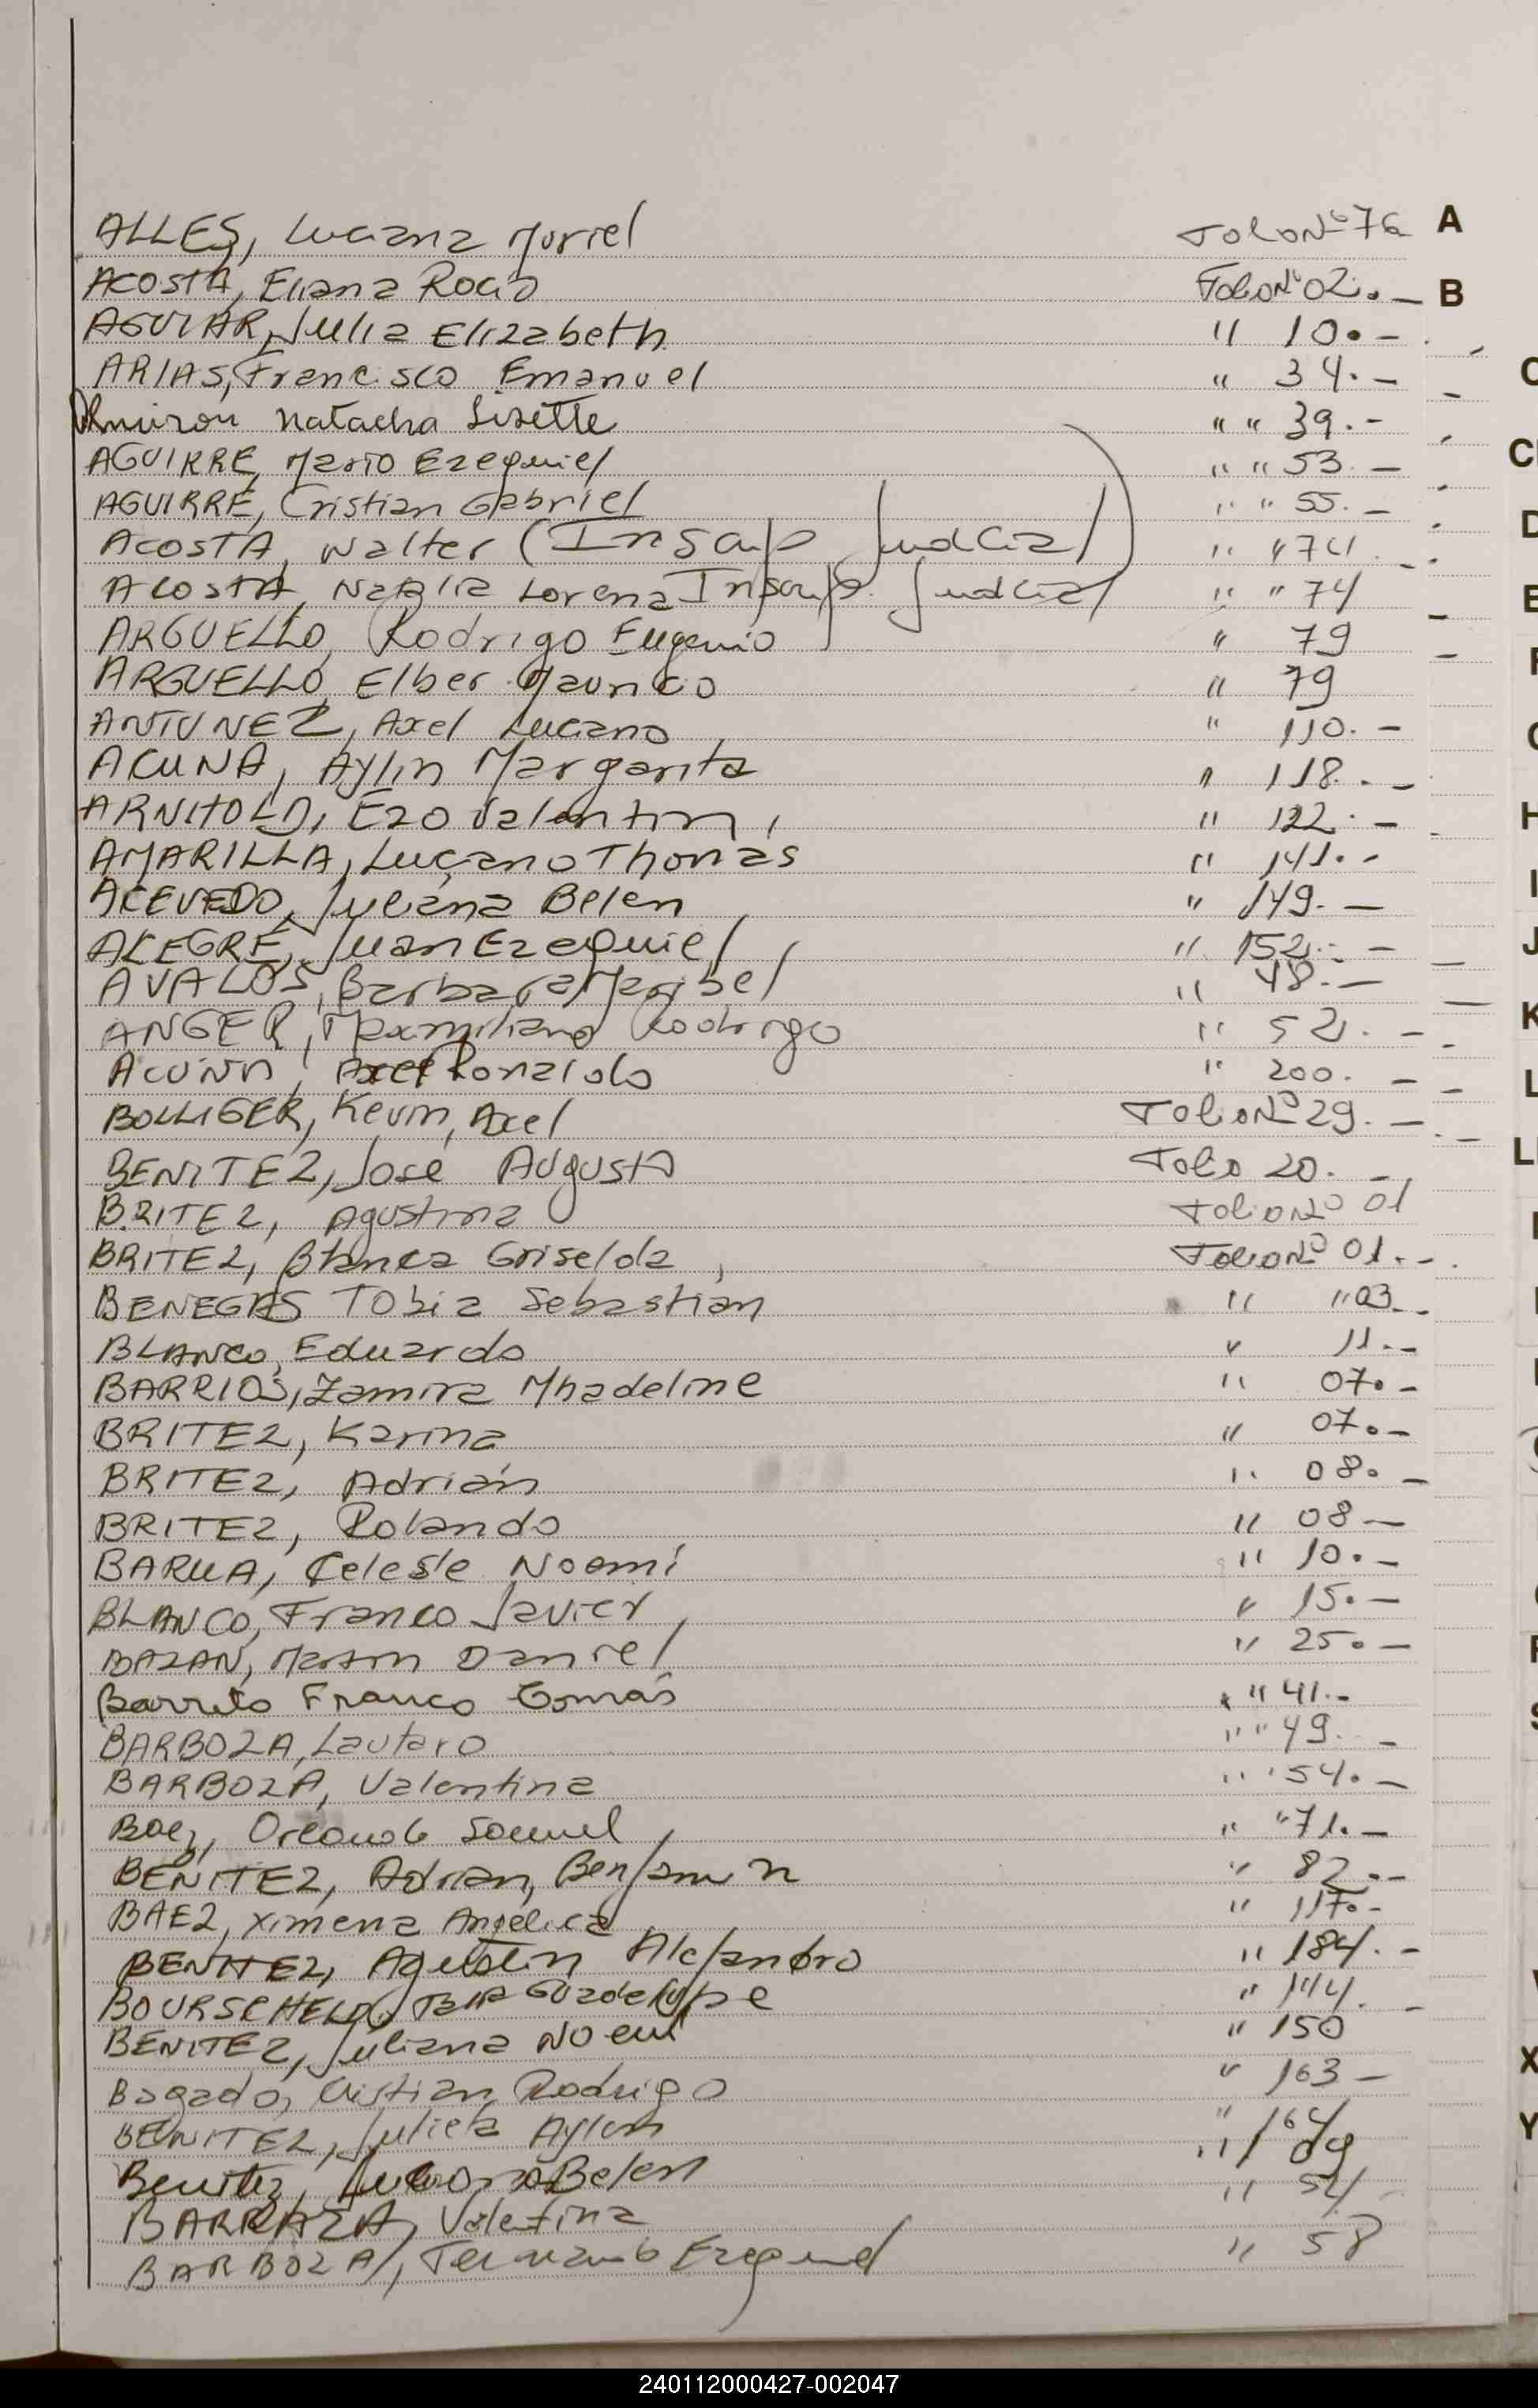 ALLES, Luciana Muriel Folio Nº 76 A
ACOSTA, Eliana Rocio Folio Nº 02.- B
AGUIAR, Julia Elizabeth " 10.-
ARIAS, Francisco Emanuel " 34.-
Almiron Natacha Lisette " " 39.-
AGUIRRE, Mario Ezequiel " " 53.-
AGUIRRE, Cristian Gabriel " " 55.-
ACOSTA, Walter (Inscrip Judicial) " " 74
ACOSTA, Natalia Lorena Inscrip. Judicial " " 74
ARGUELLO, Rodrigo Eugenio " 79
ARGUELLO, Elber Mauricio " 79
ANTUNEZ, Axel Luciano " 110.-
ACUNA, Aylin Margarita " 118.-
ARNHOLD, Ezo Valentin, " 122.-
AMARILLA, Luciano Thomas " 141.-
ACEVEDO, Juliana Belen " 149.-
ALEGRE, Juan Ezequiel " 152.-
AVALOS, Barbara Maribel " 48.-
ANGER, Maximiliano Rodrigo " 52.-
ACUÑA, Axel Ronaldo " 200.-
BOLLIGER, Kevin, Axel Folio Nº 29.-
BENITEZ, José Augusto Folio 20.-
BRITEZ, Agustina Folio Nº 01
BRITEZ, Blanca Griselda, Folio Nº 01.-
BENEGAS Tobia Sebastian " " 03.-
BLANCO, Eduardo " 11.-
BARRIOS, Zamira Mhadeline " 07.-
BRITEZ, Karina " 07.-
BRITEZ, Adrián " 08.-
BRITEZ, Rolando " 08-
BARUA, Celeste Noemí " 10.-
BLANCO, Franco Javier, " 15.-
BAZAN, Martin Daniel " 25.-
Barreto Franco Tomás " " 41.-
BARBOZA, Lautaro " " 49.-
BARBOZA, Valentina " " 54.-
Baez, Orlando Samuel " " 71.-
BENITEZ, Adrian, Benjamin " 82.-
BAEZ, Ximena Angélica " 117.-
BENITEZ, Agustin Alejandro " 184.-
BOURSCHEID, Guadelupe " 144.-
BENITEZ, Juliana Noemi " 150
Bogado, Cristian Rodrigo " 163-
BENITEZ, Julieta Aylen " 164
Benitez, Belen " 09
BARRAZA, Valentina " 54
BARBOZA, Fernando Ezequiel " 58
C
D
E
F
G
H
I
J
K
L
P
S
X
Y
240112000427-002047